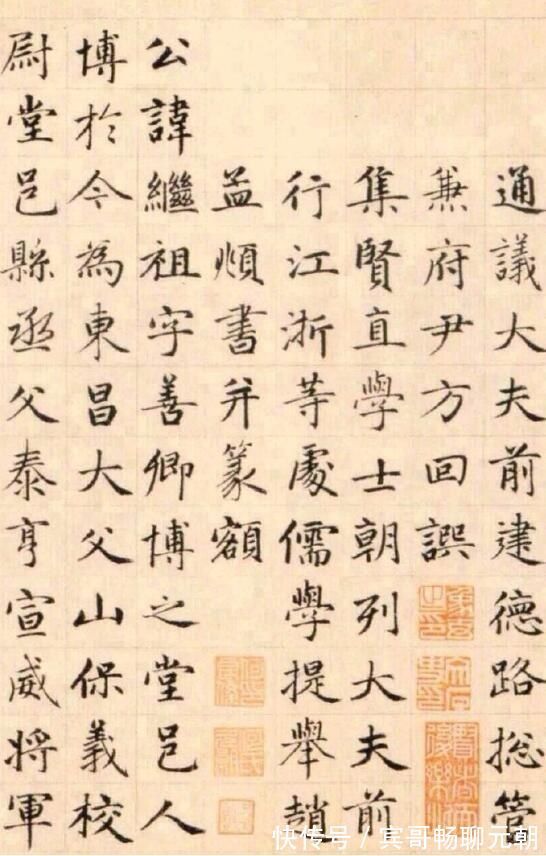 通議大夫前建德路摠管
兼府尹方回譔
集賢直學士朝列大夫前
行江浙等處儒學提舉趙
孟頫書并篆額
公諱繼祖字善卿博之堂邑人
博於今為東昌大父山保義校
尉堂邑縣丞父泰亨宣威將軍
快传号/宾哥畅聊元朝